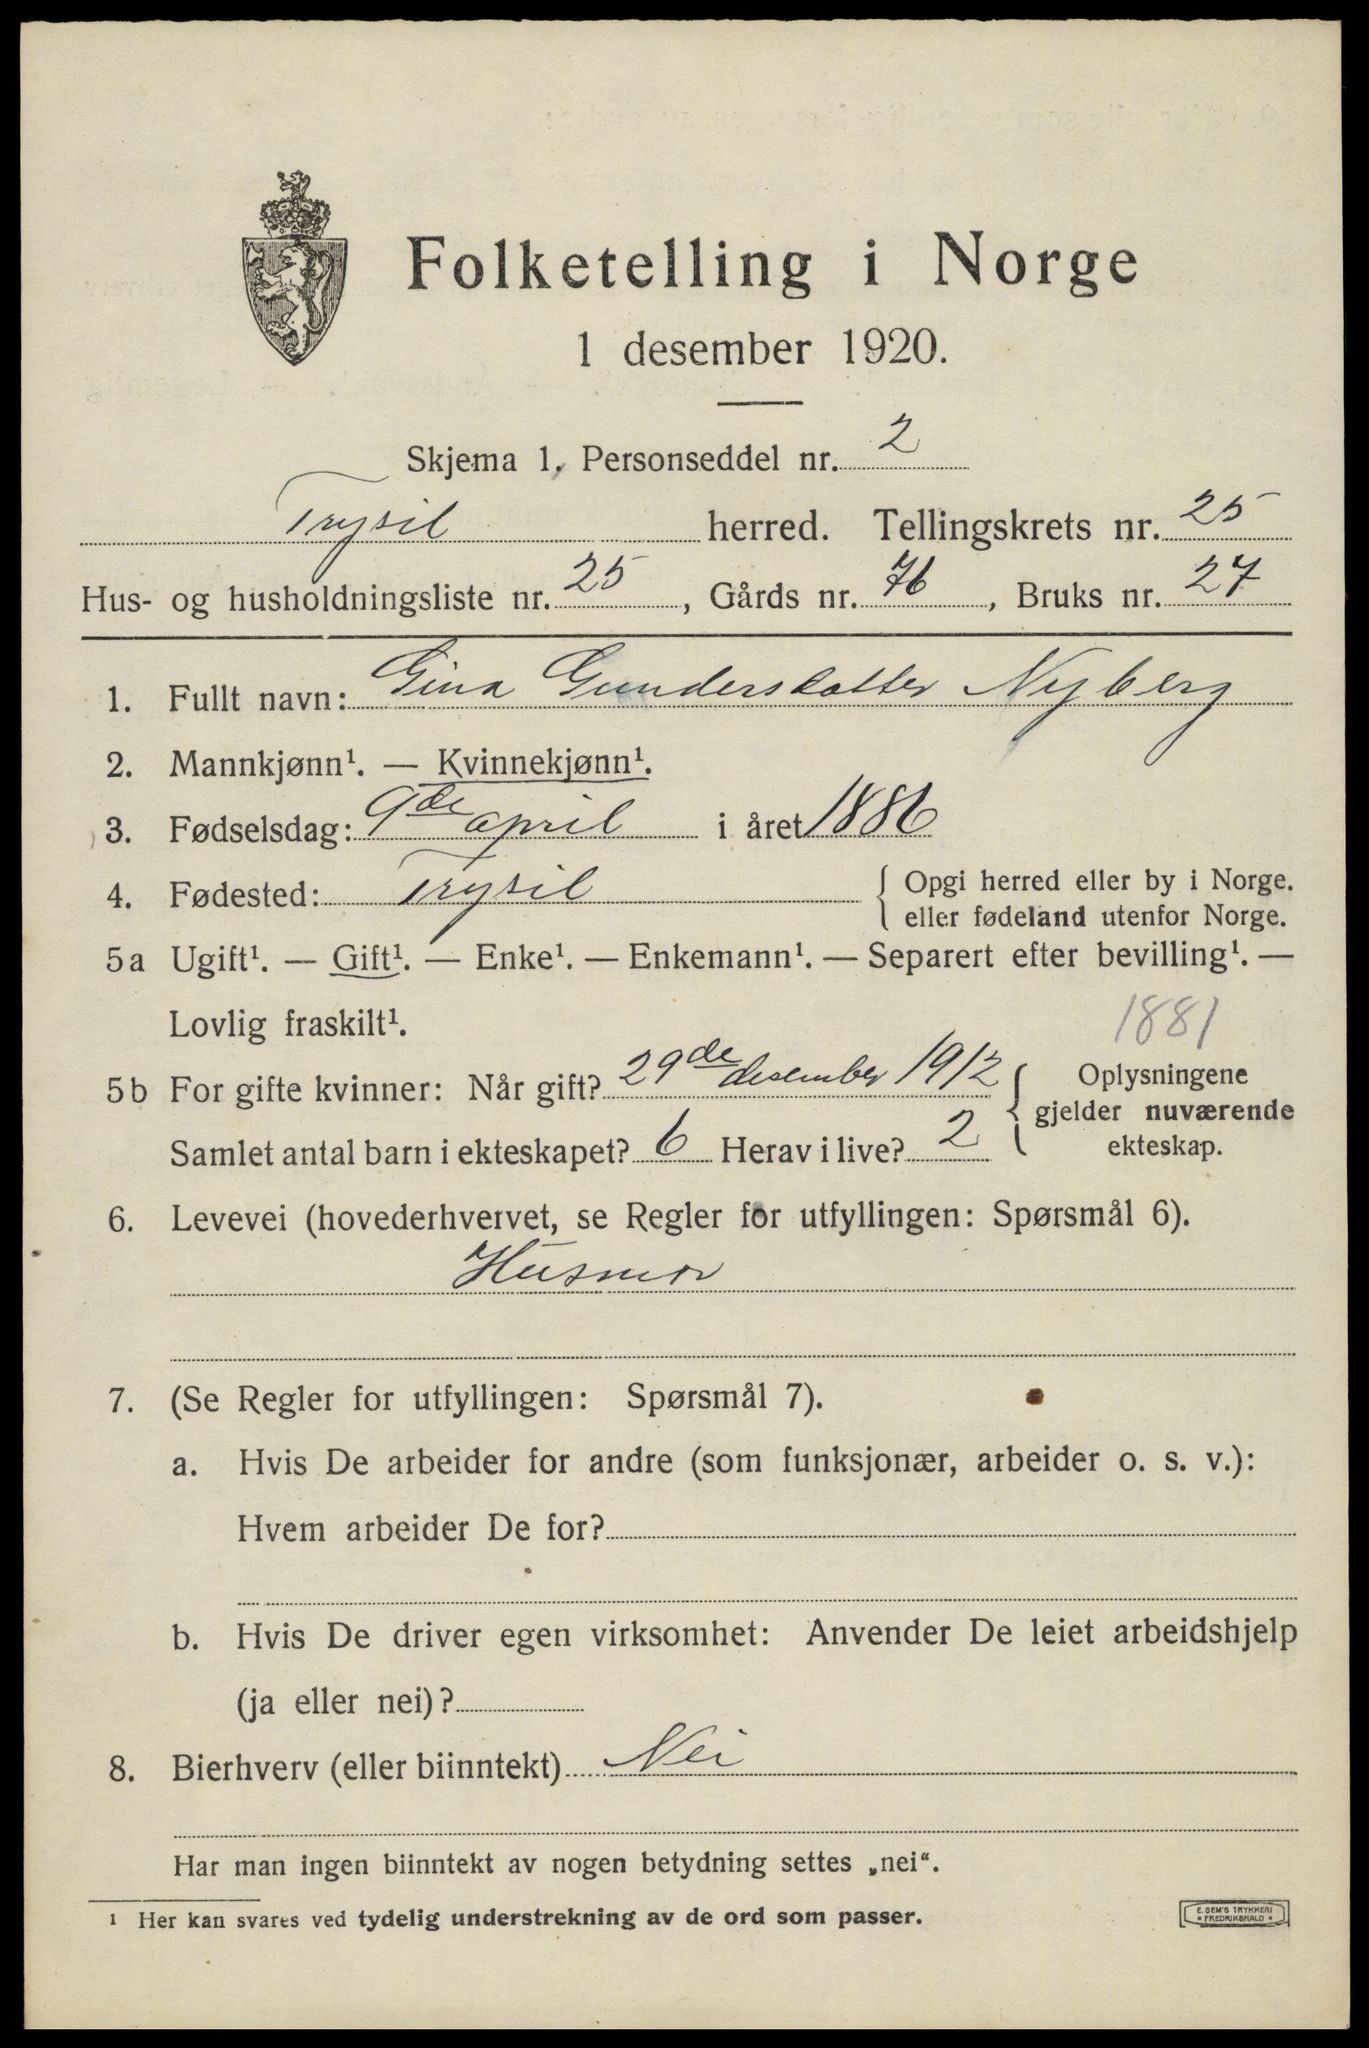 Folketelling i Norge
1 desember 1920.
Skjema 1. Personseddel nr. 2
Trysil herred. Tellingskrets nr. 25
Hus- og husholdningsliste nr. 25, Gårds nr. 76, Bruks nr. 27
1. Fullt navn: Gina Gundersdatter Nyberg
2. Mannkjønn¹. — Kvinnekjønn¹.
3. Fødselsdag: 9de april i året 1886
4. Fødested: Trysil { Opgi herred eller by i Norge.
eller fødeland utenfor Norge.
5a Ugift¹. — Gift¹. — Enke¹. — Enkemann¹. — Separert efter bevilling¹. —
Lovlig fraskilt¹.
1881
5b For gifte kvinner: Når gift? 29de desember 1912
Samlet antal barn i ekteskapet? 6 Herav i live? 2
{ Oplysningene
gjelder nuværende
ekteskap.
6. Levevei (hovederhvervet, se Regler for utfyllingen: Spørsmål 6).
Husmor
7. (Se Regler for utfyllingen: Spørsmål 7).
a. Hvis De arbeider for andre (som funksjonær, arbeider o. s. v.):
Hvem arbeider De for?
b. Hvis De driver egen virksomhet: Anvender De leiet arbeidshjelp
(ja eller nei)?
8. Bierhverv (eller biinntekt) Nei
Har man ingen biinntekt av nogen betydning settes „nei“.
¹ Her kan svares ved tydelig understrekning av de ord som passer.
E. SEM'S TRYKKERI
* FREDRIKSHALD *